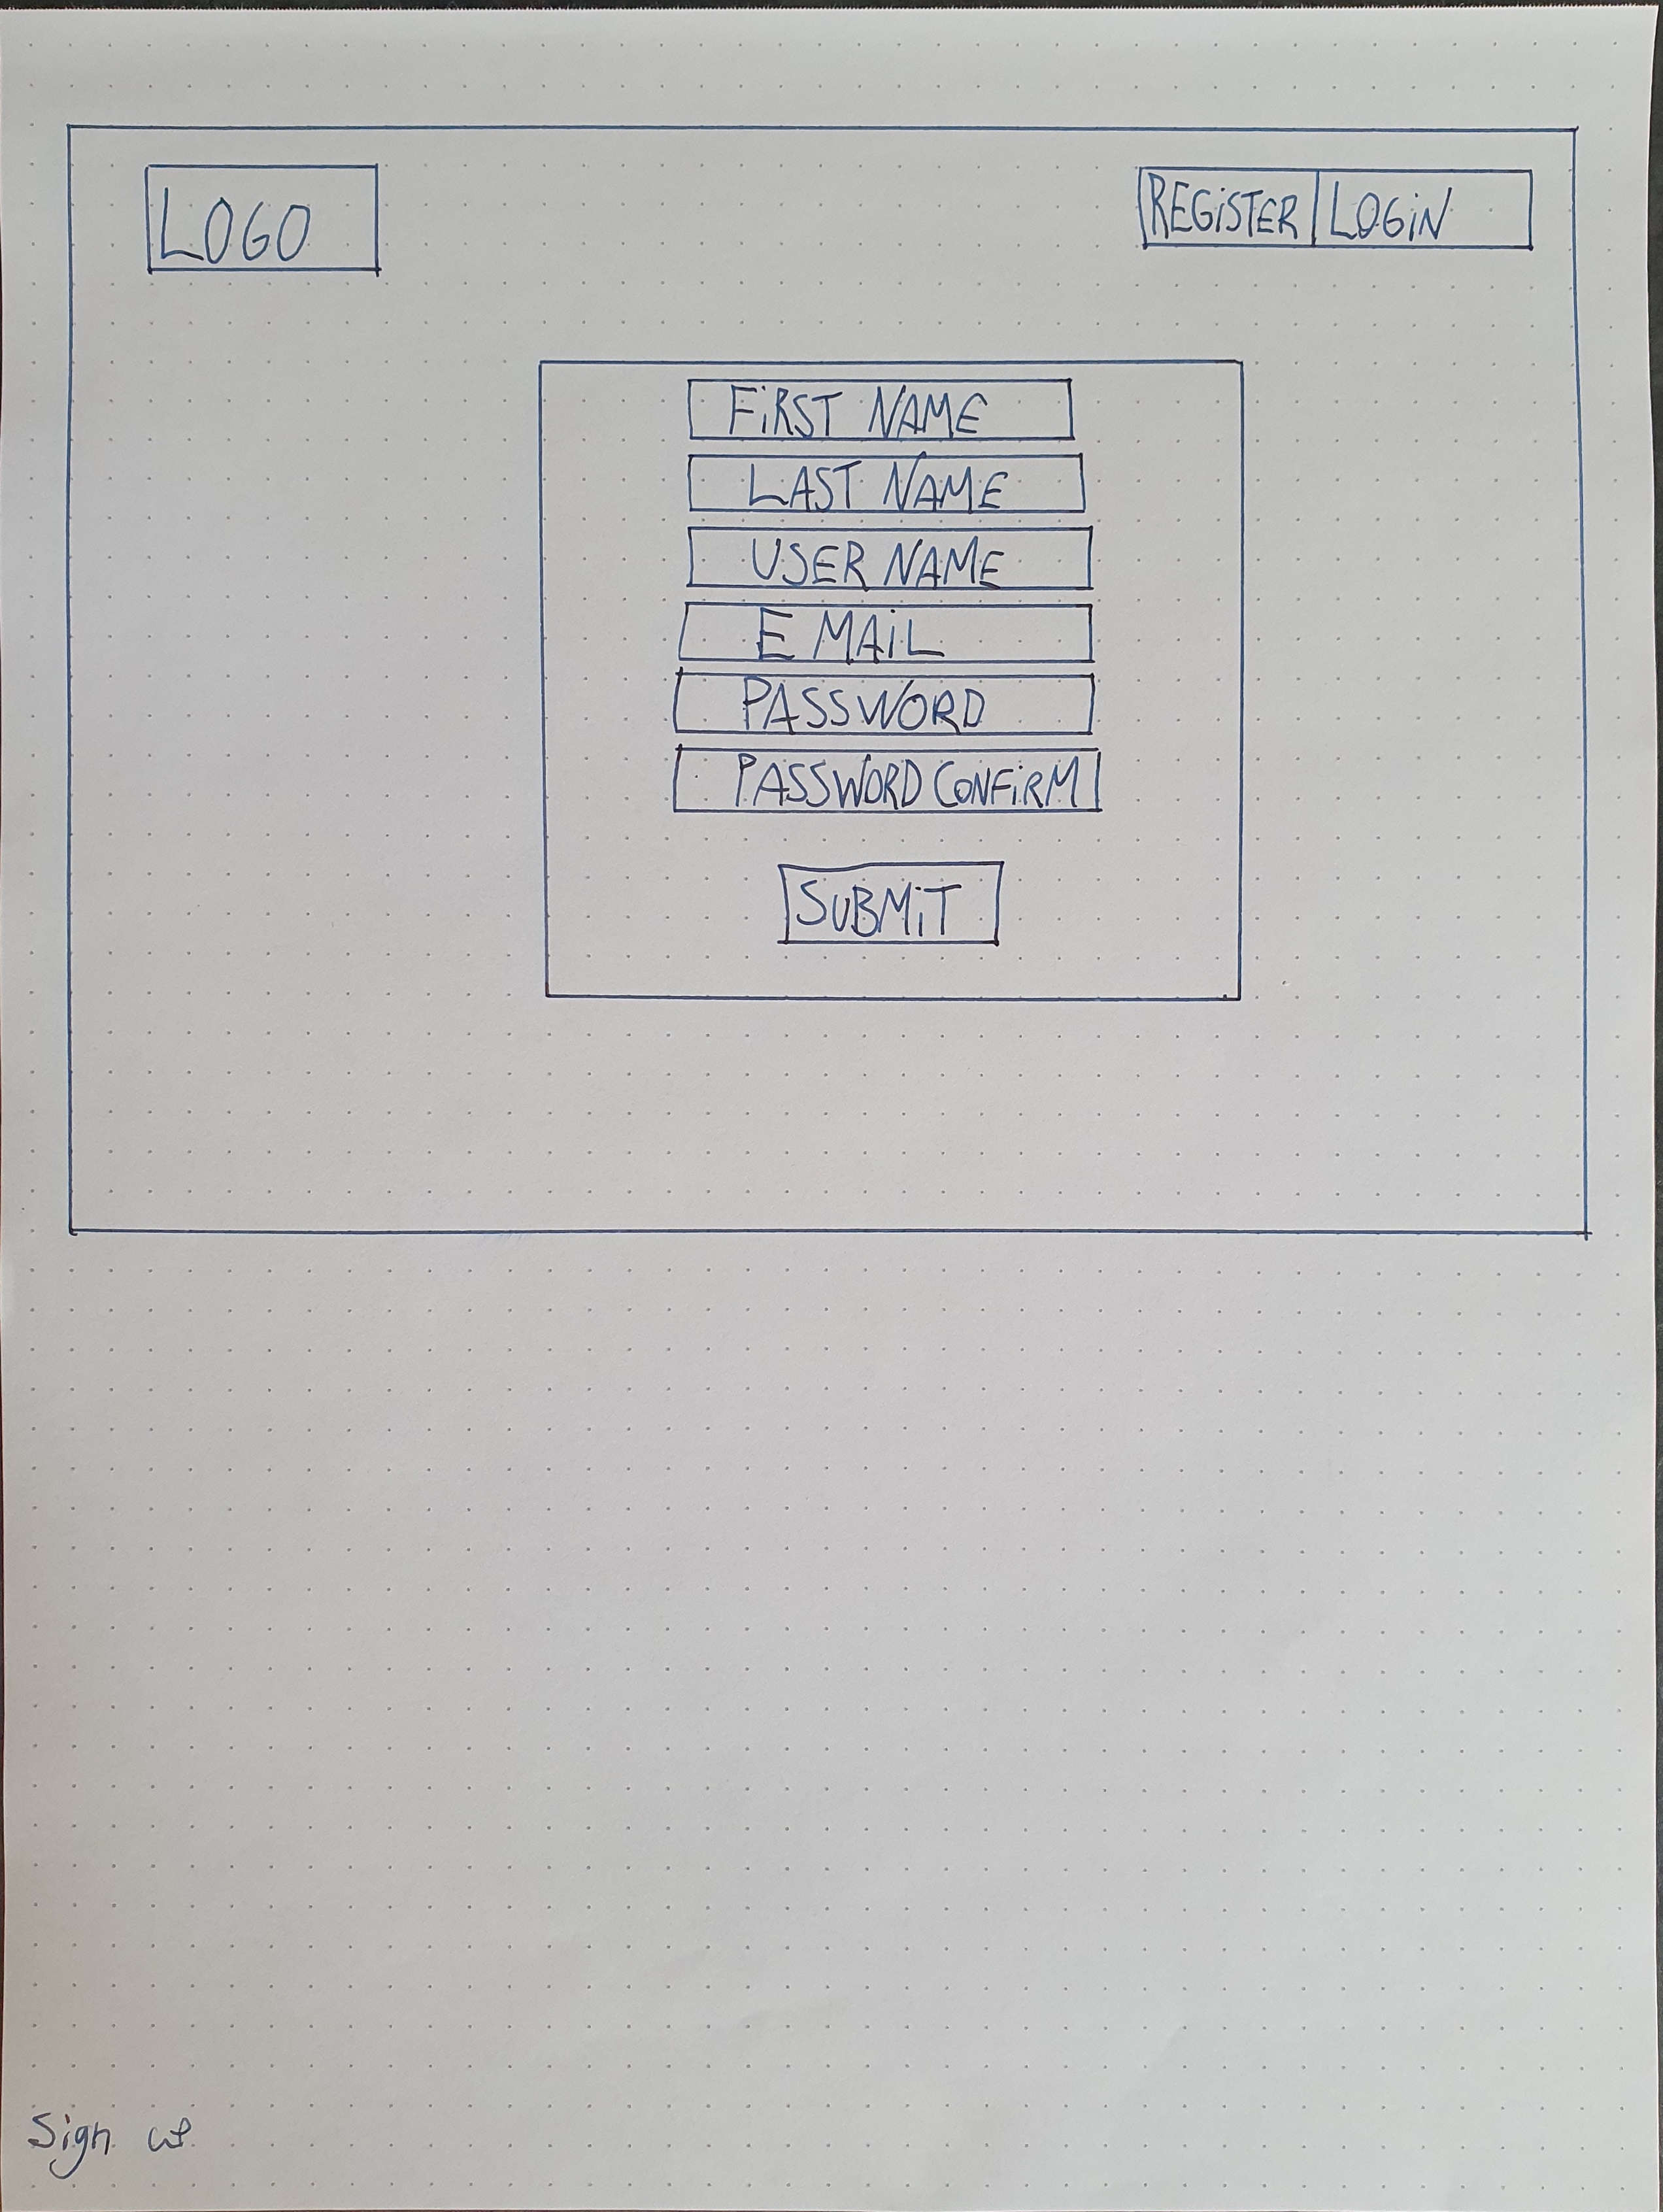 LOGO
REGiSTER LOGiN
FiRST NAME
LAST NAME
USER NAME
E MAiL
PASSWORD
PASSWORD CONFiRM
SUBMiT
Sign up